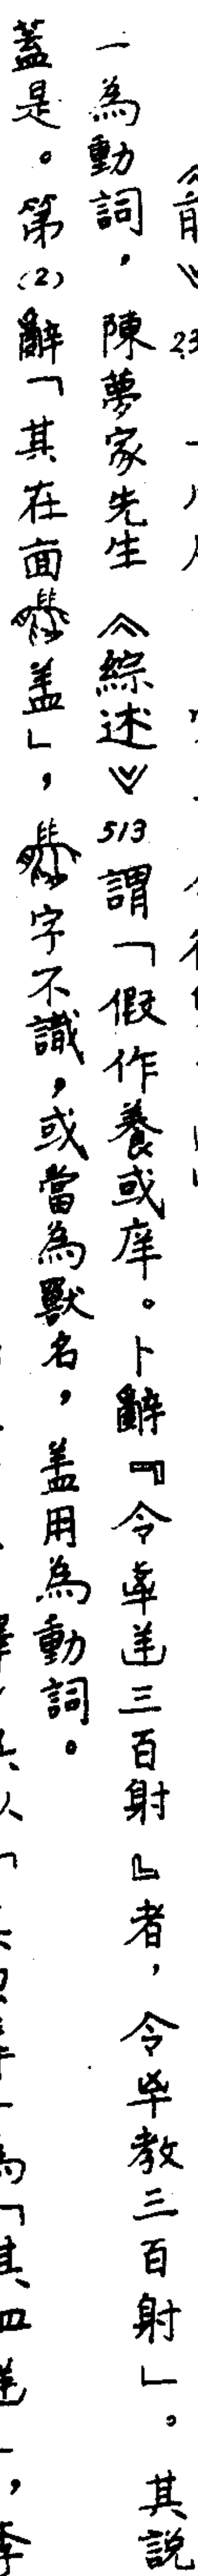 一為動詞，陳夢家先生《綜述》513謂「假作養或庠。卜辭『令𠦪𨔶三百射』者，令𠦪教三百射」。其說
蓋是。第(2)辭「其在面盖」，字不識，或當為獸名，盖用為動詞。